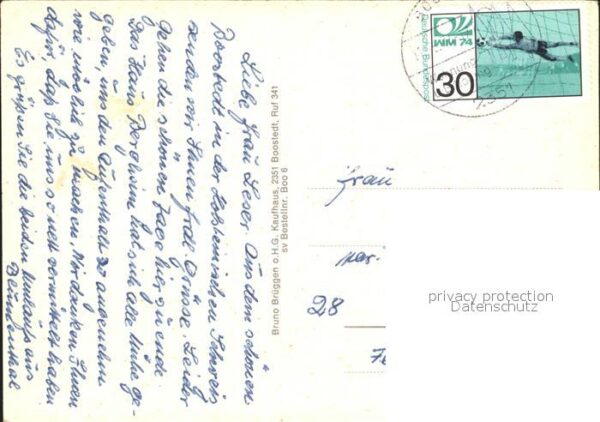 Liebe Frau Leser. Aus dem schönen
Boostedt in der Holsteinischen Schweiz
senden wir Ihnen frdl. Grüsse. Leider
gehen die schönen Tage hier zu ende
Das Haus Bergheim hat sich alle Mühe ge-
geben, uns den Aufenthalt so angenehm
wie möglich zu machen. Wir danken Ihnen
dafür, daß Sie uns so nett vermittelt haben
Es grüßen Sie die beiden Urlauber aus
Blumenthal
Bruno Brüggen o.H.G. Kaufhaus, 2351 Boostedt, Ruf 341
sv Bestellnr. Boo 6
WM 74
Deutsche Bundespost
30
2351
Frau
28
privacy protection
Datenschutz